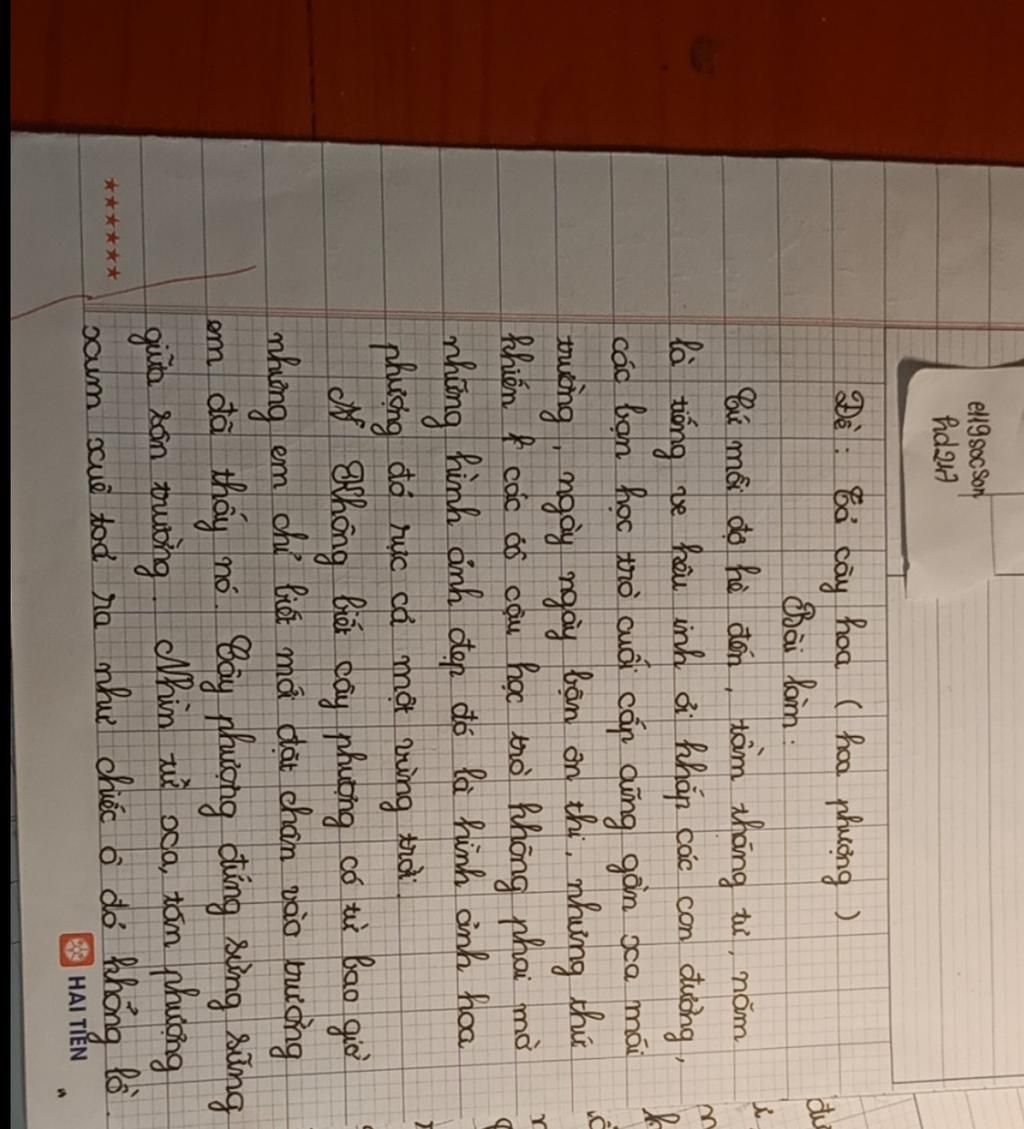 e119socson
hd247
Đề: Tả cây hoa ( hoa phượng )
Bài làm:
Cứ mỗi độ hè đến, tầm tháng tư, năm
là tiếng ve kêu inh ỏi khắp các con đường,
các bạn học trò cuối cấp cũng gần xa mái
trường, ngày ngày bận ôn thi, nhưng thứ
khiến các cô cậu học trò không phai mờ
những hình ảnh đẹp đó là hình ảnh hoa
phượng đỏ rực cả một vùng trời.
Không biết cây phượng có từ bao giờ
nhưng em chỉ biết mới đặt chân vào trường
em đã thấy nó. Cây phượng đứng sừng sững
giữa sân trường. Nhìn từ xa, tán phượng
xum xuê toả ra như chiếc ô đỏ khổng lồ.
HAI TIEN